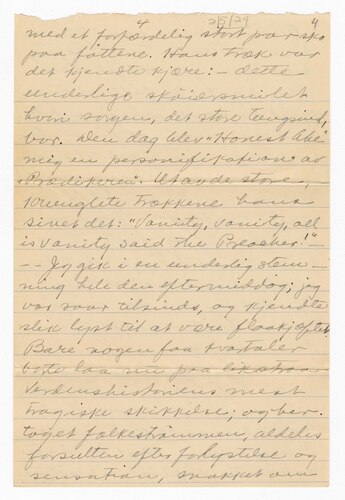 4 2/5/29 4
med et forfærdelig stort par sko
paa føttene. Hans træk var
det kjendte kjære: - dette
underlige skøiersmilet
hvori sorgen, det store tungsind,
bor. Den dag blev "Honest Abe"
mig en personifikation av
"Prædikeren". Ut av de store,
trækkene hans
sivet det: "Vanity, vanity, all
is vanity said The Preacher!" -
- - Jeg gik i en underlig stem-
ning hele den eftermiddag; jeg
var saar tilsinds, og kjendte
slik lyst til at være
Bare nogen faa kvartaler
borte laa nu paa
verdenshistoriens mest
tragiske skikkelse; og her
toget folkestrømmen, aldeles
forsulten efter forlystelse og
sensation, snakket om